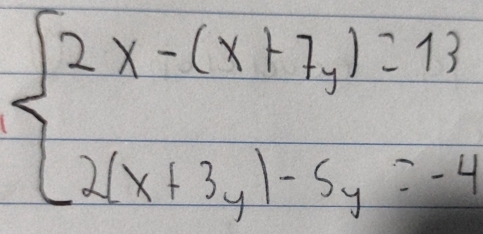 2x-(x+7y)=13
2(x+3y)-5y=-4